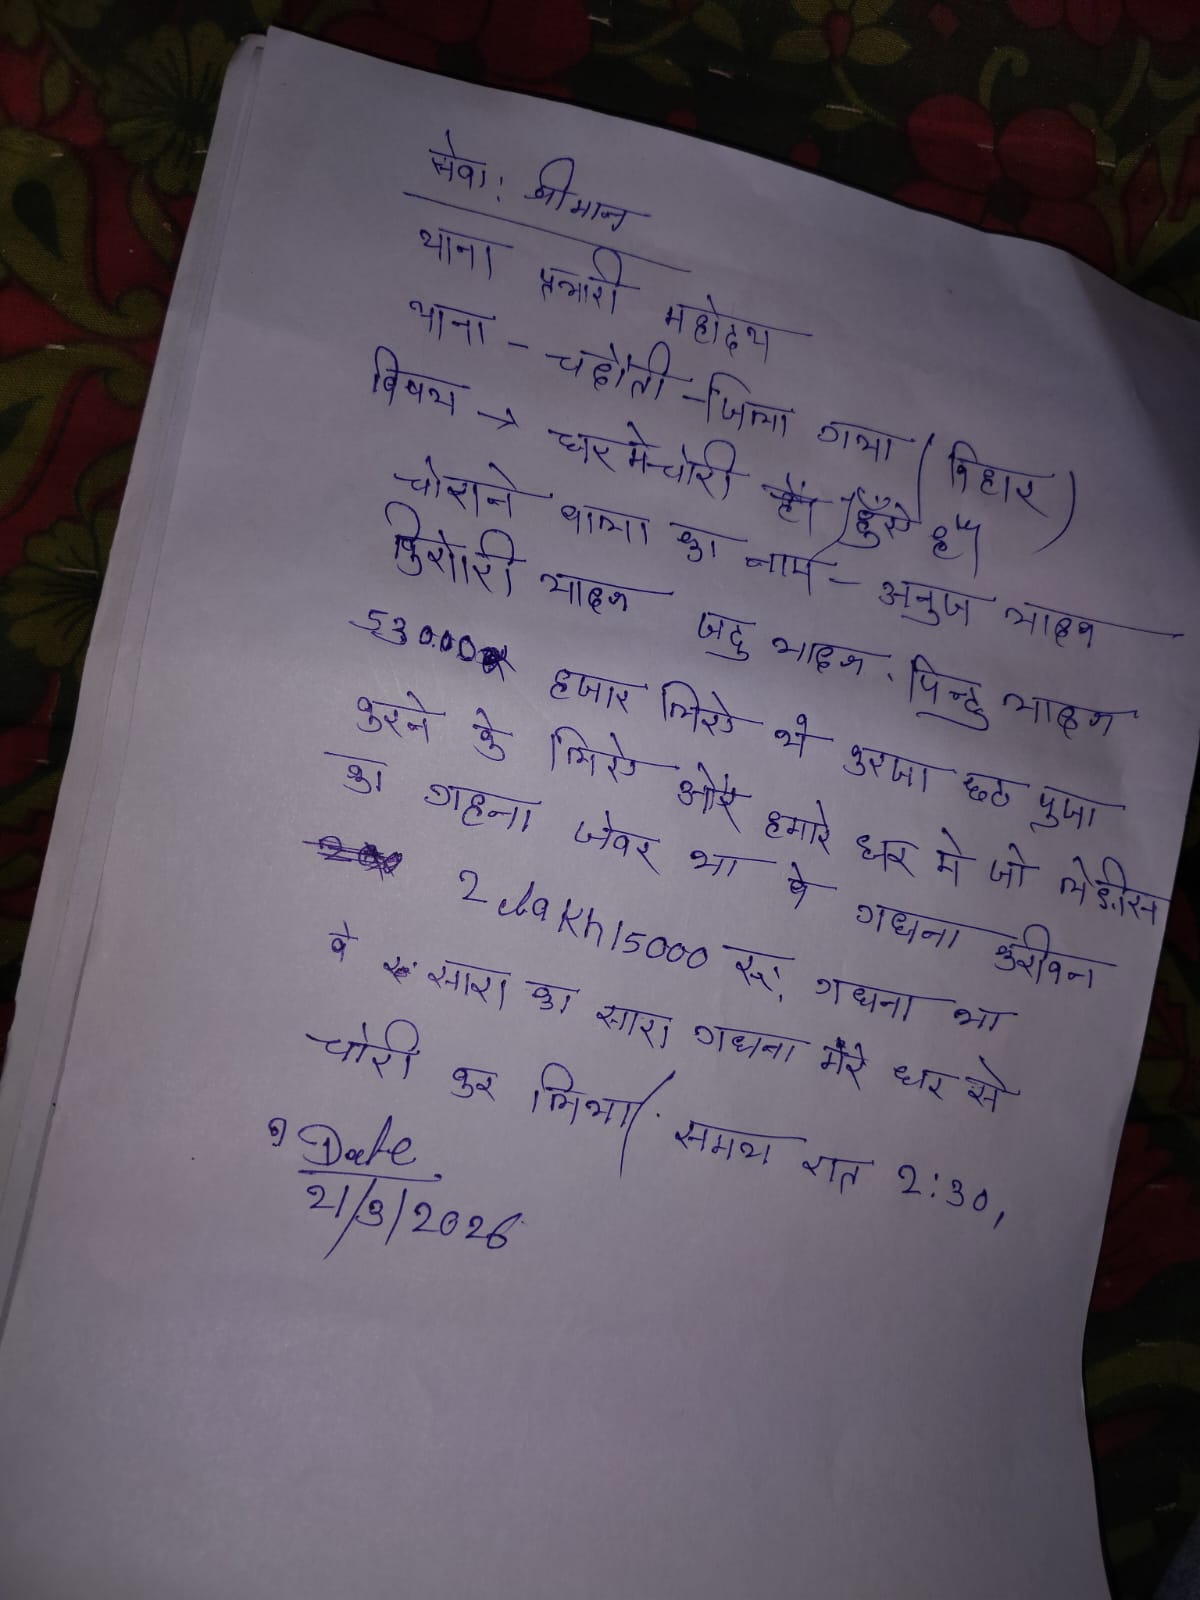 सेवा: श्रीमान
थाना प्रभारी महोदय
थाना - चदौती - जिला गया (बिहार)
विषय → घर मे चोरी हुँऐ है
चोराने वाला का नाम - अनुज यादव
किशोरी यादव जदु यादव. पिन्टु यादव
53000 हजार लिऐ थे करजा छठ पुजा
करने के लिऐ और हमारे घर मे जो लेडीस
का गहना जेवर था वे गधना करीवन
2 Lakh 15000 रू: गधना था
वे सारा का सारा गधना मेरे घर से
चोरी कर लिया। समय रात 2:30,
Date
21/3/2026